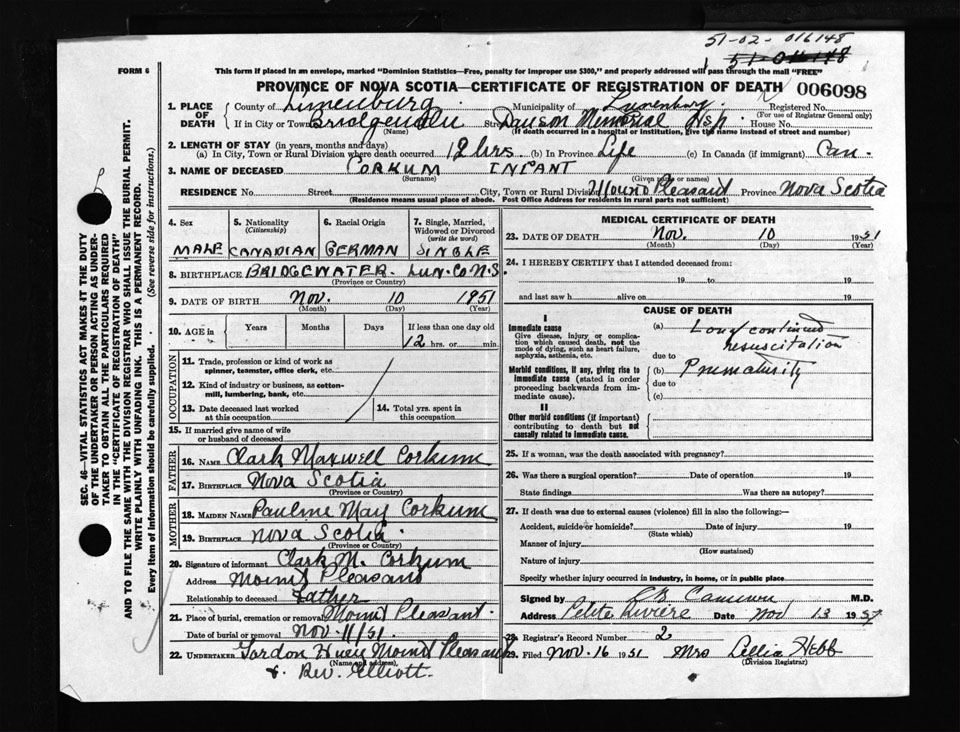 51-02-016148
51-016148
FORM 6
This form if placed in an envelope, marked "Dominion Statistics—Free, penalty for improper use $300," and properly addressed will pass through the mail "FREE"
PROVINCE OF NOVA SCOTIA—CERTIFICATE OF REGISTRATION OF DEATH 006098
1. PLACE OF DEATH County of Lunenburg Municipality of Lunenburg Registered No.
(For use of Registrar General only)
If in City or Town Bridgewater Street Dawson Memorial Hsp. House No.
(Name) (If death occurred in a hospital or institution, give the name instead of street and number)
2. LENGTH OF STAY (in years, months and days)
(a) In City, Town or Rural Division where death occurred 12 hrs (b) In Province Life (c) In Canada (if immigrant) Can.
3. NAME OF DECEASED CORKUM INFANT
(Surname) (Given name or names)
RESIDENCE No. Street City, Town or Rural Division Mount Pleasant Province Nova Scotia
(Residence means usual place of abode. Post Office Address for residents in rural parts not sufficient)
SEC. 46—VITAL STATISTICS ACT MAKES IT THE DUTY
OF THE UNDERTAKER OR PERSON ACTING AS UNDER-
TAKER TO OBTAIN ALL THE PARTICULARS REQUIRED
IN THE "CERTIFICATE OF REGISTRATION OF DEATH"
AND TO FILE THE SAME WITH THE DIVISION REGISTRAR WHO SHALL ISSUE THE BURIAL PERMIT.
WRITE PLAINLY WITH UNFADING INK. THIS IS A PERMANENT RECORD.
Every item of information should be carefully supplied. (See reverse side for instructions.)
4. Sex 5. Nationality (Citizenship) 6. Racial Origin 7. Single, Married, Widowed or Divorced (write the word)
MALE CANADIAN GERMAN SINGLE
8. BIRTHPLACE BRIDGEWATER. LUN. CO N.S.
(Province or Country)
9. DATE OF BIRTH Nov. 10 1951
(Month) (Day) (Year)
10. AGE in Years Months Days If less than one day old
12 hrs. or min.
OCCUPATION
11. Trade, profession or kind of work as
spinner, teamster, office clerk, etc.
12. Kind of industry or business, as cotton-
mill, lumbering, bank, etc.
13. Date deceased last worked
at this occupation
14. Total yrs. spent in
this occupation
15. If married give name of wife
or husband of deceased
FATHER
16. NAME Clark Maxwell Corkum
17. BIRTHPLACE Nova Scotia
(Province or Country)
MOTHER
18. MAIDEN NAME Pauline May Corkum
19. BIRTHPLACE Nova Scotia
(Province or Country)
20. Signature of informant Clark M. Corkum
Address Mount Pleasant
Relationship to deceased Father
21. Place of burial, cremation or removal Mount Pleasant.
Date of burial or removal Nov. 11/51.
22. UNDERTAKER Gordon Huey Mount Pleasant
(Name and address)
& Rev. Elliott.
MEDICAL CERTIFICATE OF DEATH
23. DATE OF DEATH Nov. 10 1951
(Month) (Day) (Year)
24. I HEREBY CERTIFY that I attended deceased from:
19 to 19
and last saw h alive on 19
CAUSE OF DEATH
I
Immediate cause
Give disease, injury or complica-
tion which caused death, not the
mode of dying, such as heart failure,
asphyxia, asthenia, etc.
(a) Long continued
resuscitation
due to
Morbid conditions, if any, giving rise to
immediate cause (stated in order
proceeding backwards from im-
mediate cause).
(b) Prematurity
due to
(c)
II
Other morbid conditions (if important)
contributing to death but not
causally related to immediate cause.
25. If a woman, was the death associated with pregnancy?
26. Was there a surgical operation? Date of operation 19
State findings Was there an autopsy?
27. If death was due to external causes (violence) fill in also the following:—
Accident, suicide or homicide? Date of injury 19
(State which)
Manner of injury
(How sustained)
Nature of injury
Specify whether injury occurred in industry, in home, or in public place
Signed by Cameron M.D.
Address Petite Riviere Date Nov 13 1951
28. Registrar's Record Number 2
29. Filed Nov. 16 1951 Mrs Lellia Hebb
(Division Registrar)